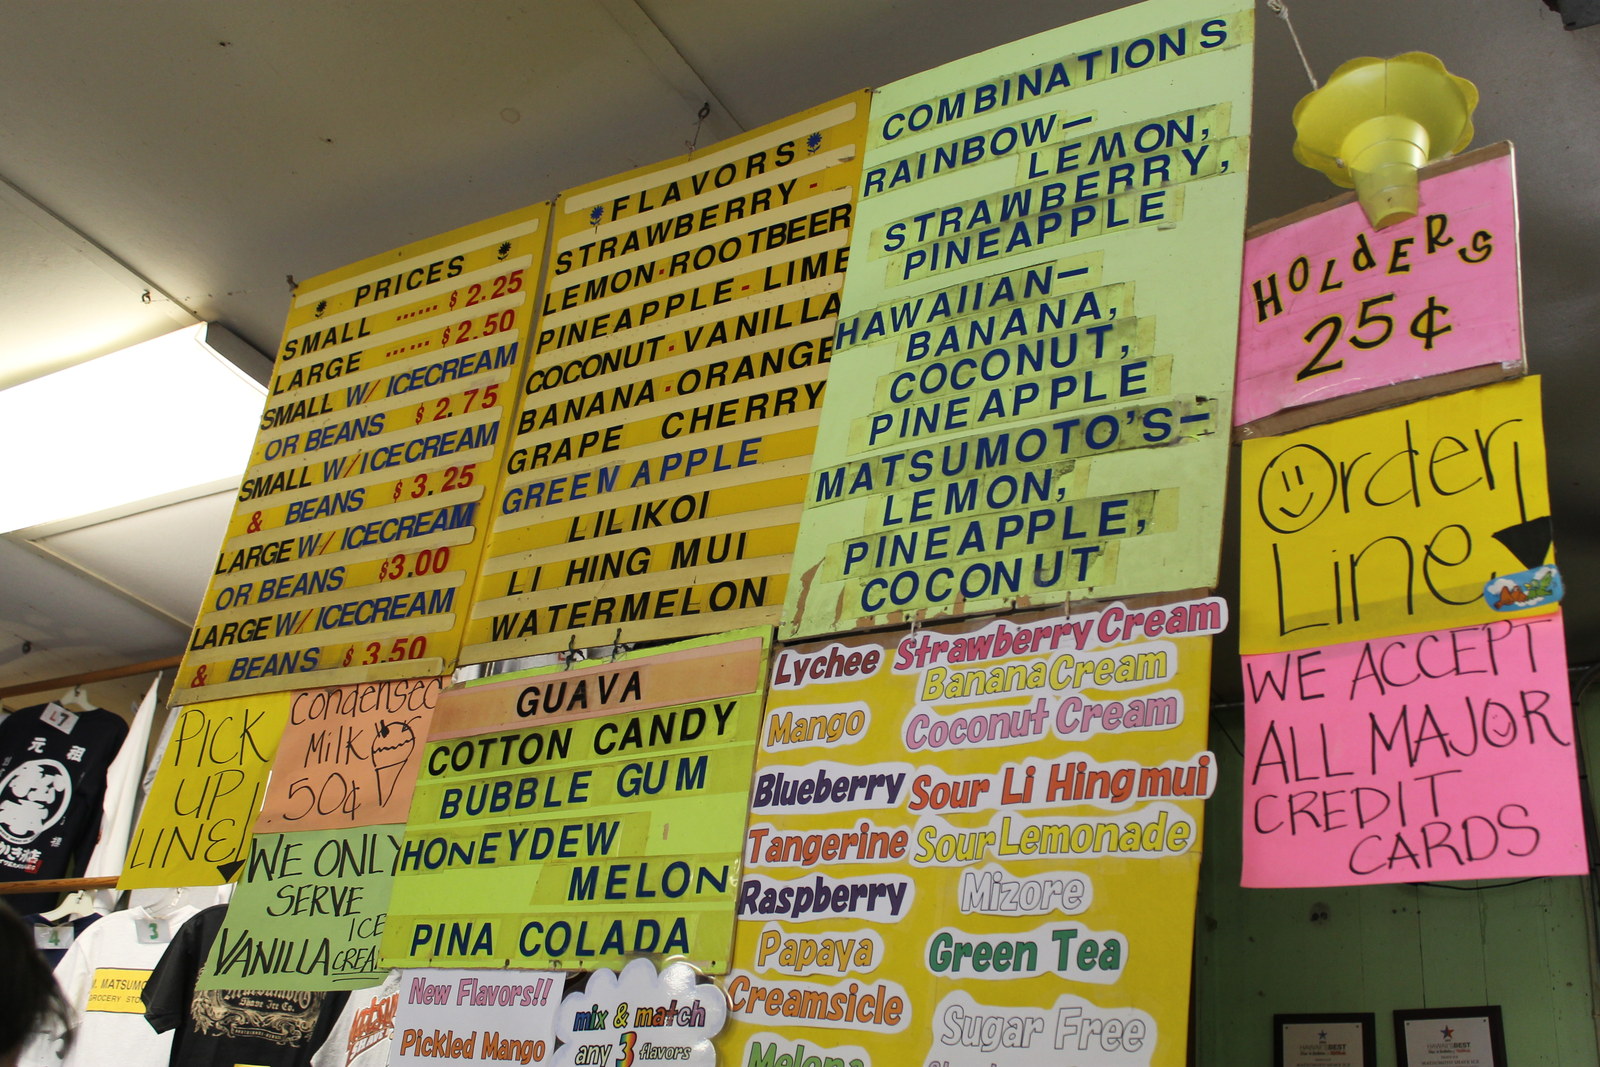 PRICES
SMALL ...... $2.25
LARGE ...... $2.50
SMALL W/ ICECREAM
OR BEANS $2.75
SMALL W/ ICECREAM
& BEANS $3.25
LARGE W/ ICECREAM
OR BEANS $3.00
LARGE W/ ICECREAM
& BEANS $3.50
FLAVORS
STRAWBERRY -
LEMON-ROOTBEER
PINEAPPLE - LIME
COCONUT-VANILLA
BANANA-ORANGE
GRAPE CHERRY
GREEN APPLE
LILIKOI
LI HING MUI
WATERMELON
COMBINATIONS
RAINBOW—
LEMON,
STRAWBERRY,
PINEAPPLE
HAWAIIAN—
BANANA,
COCONUT,
PINEAPPLE
MATSUMOTO'S—
LEMON,
PINEAPPLE,
COCONUT
HOLdERS
25¢
Order
Line
WE ACCEPT
ALL MAJOR
CREDIT
CARDS
PICK
UP
LINE!
Condensed
Milk
.50¢
WE ONLY
SERVE
VANILLA ICE
CREA
GUAVA
COTTON CANDY
BUBBLE GUM
HONEYDEW
MELON
PINA COLADA
New Flavors!!
Pickled Mango
mix & match
any 3 flavors
Lychee
Mango
Blueberry
Tangerine
Raspberry
Papaya
Creamsicle
Melona
Strawberry Cream
Banana Cream
Coconut Cream
Sour Li Hing mui
Sour Lemonade
Mizore
Green Tea
Sugar Free
L7
元祖
4
3
M. MATSUMO
GROCERY STO
Shave Ice Co.
HAWAII'S BEST
HAWAII'S BEST